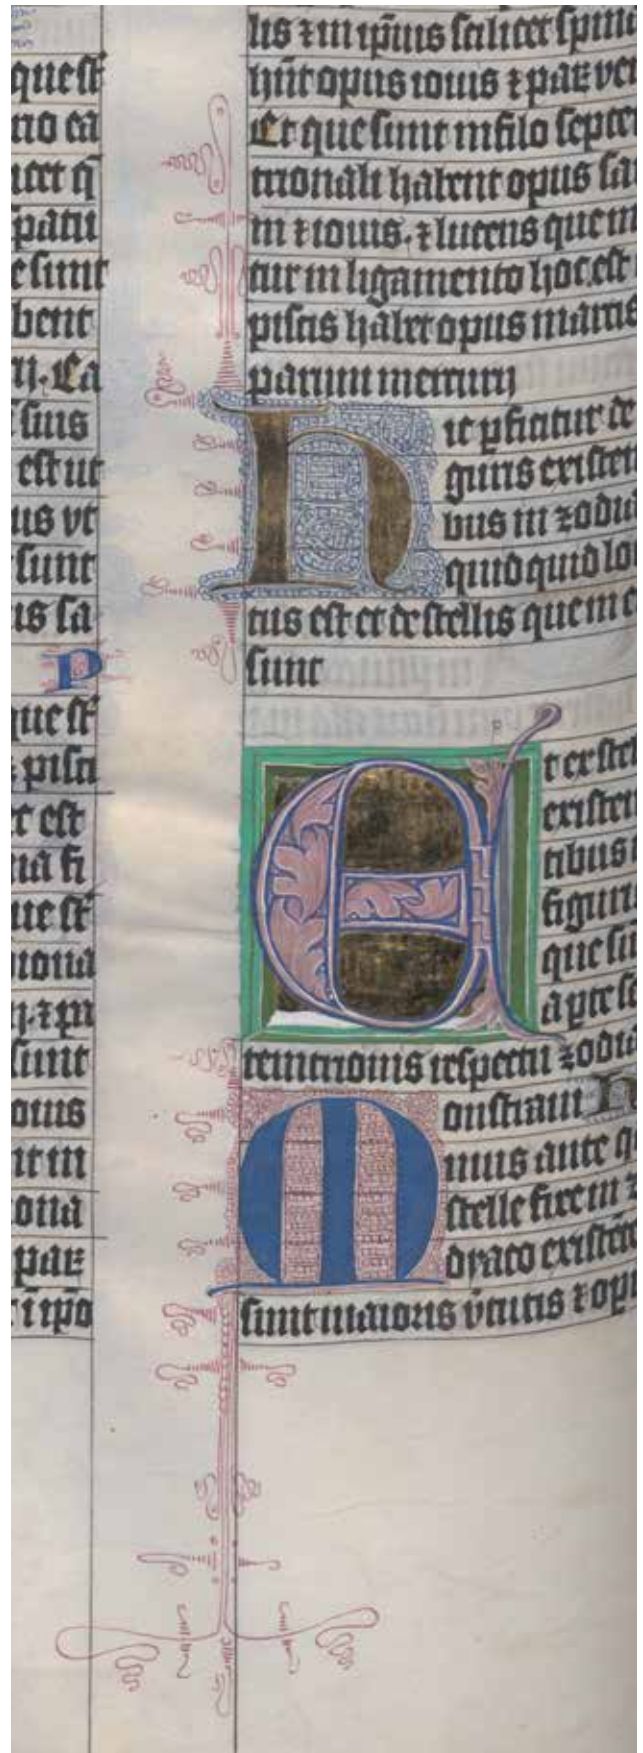 que st̄
no ea
icet q̄
spatii
e sunt
bent
rij. Ca
suis
est ut
us vt
sunt
is sa
P
que st̄
⁊ pisci
er est
na fi
ue st̄
iona
sunt
ouis
nt in
ona
par
i ip̄o
lis ⁊ in ip̄ius scilicet spina
hn̄t opus iouis ⁊ par ven
Et que sunt in filo septen
trionali habent opus sa
ni ⁊ iouis. ⁊ lucens que no
tur in ligamento hoc est
piscis habet opus martis
parum mercurij
Hic ꝑficitur de
guris existen
bus in zodia
quid quid lo
tus est et de stellis que in e
sunt
Et ex stel
existen
tibus
figuris
que su
a ꝑte se
tentrionis respectu zodia
Monstraui H
mus ante q
stelle fixe in z
dyaco existen̄
sunt maioris v̄tutis ⁊ op